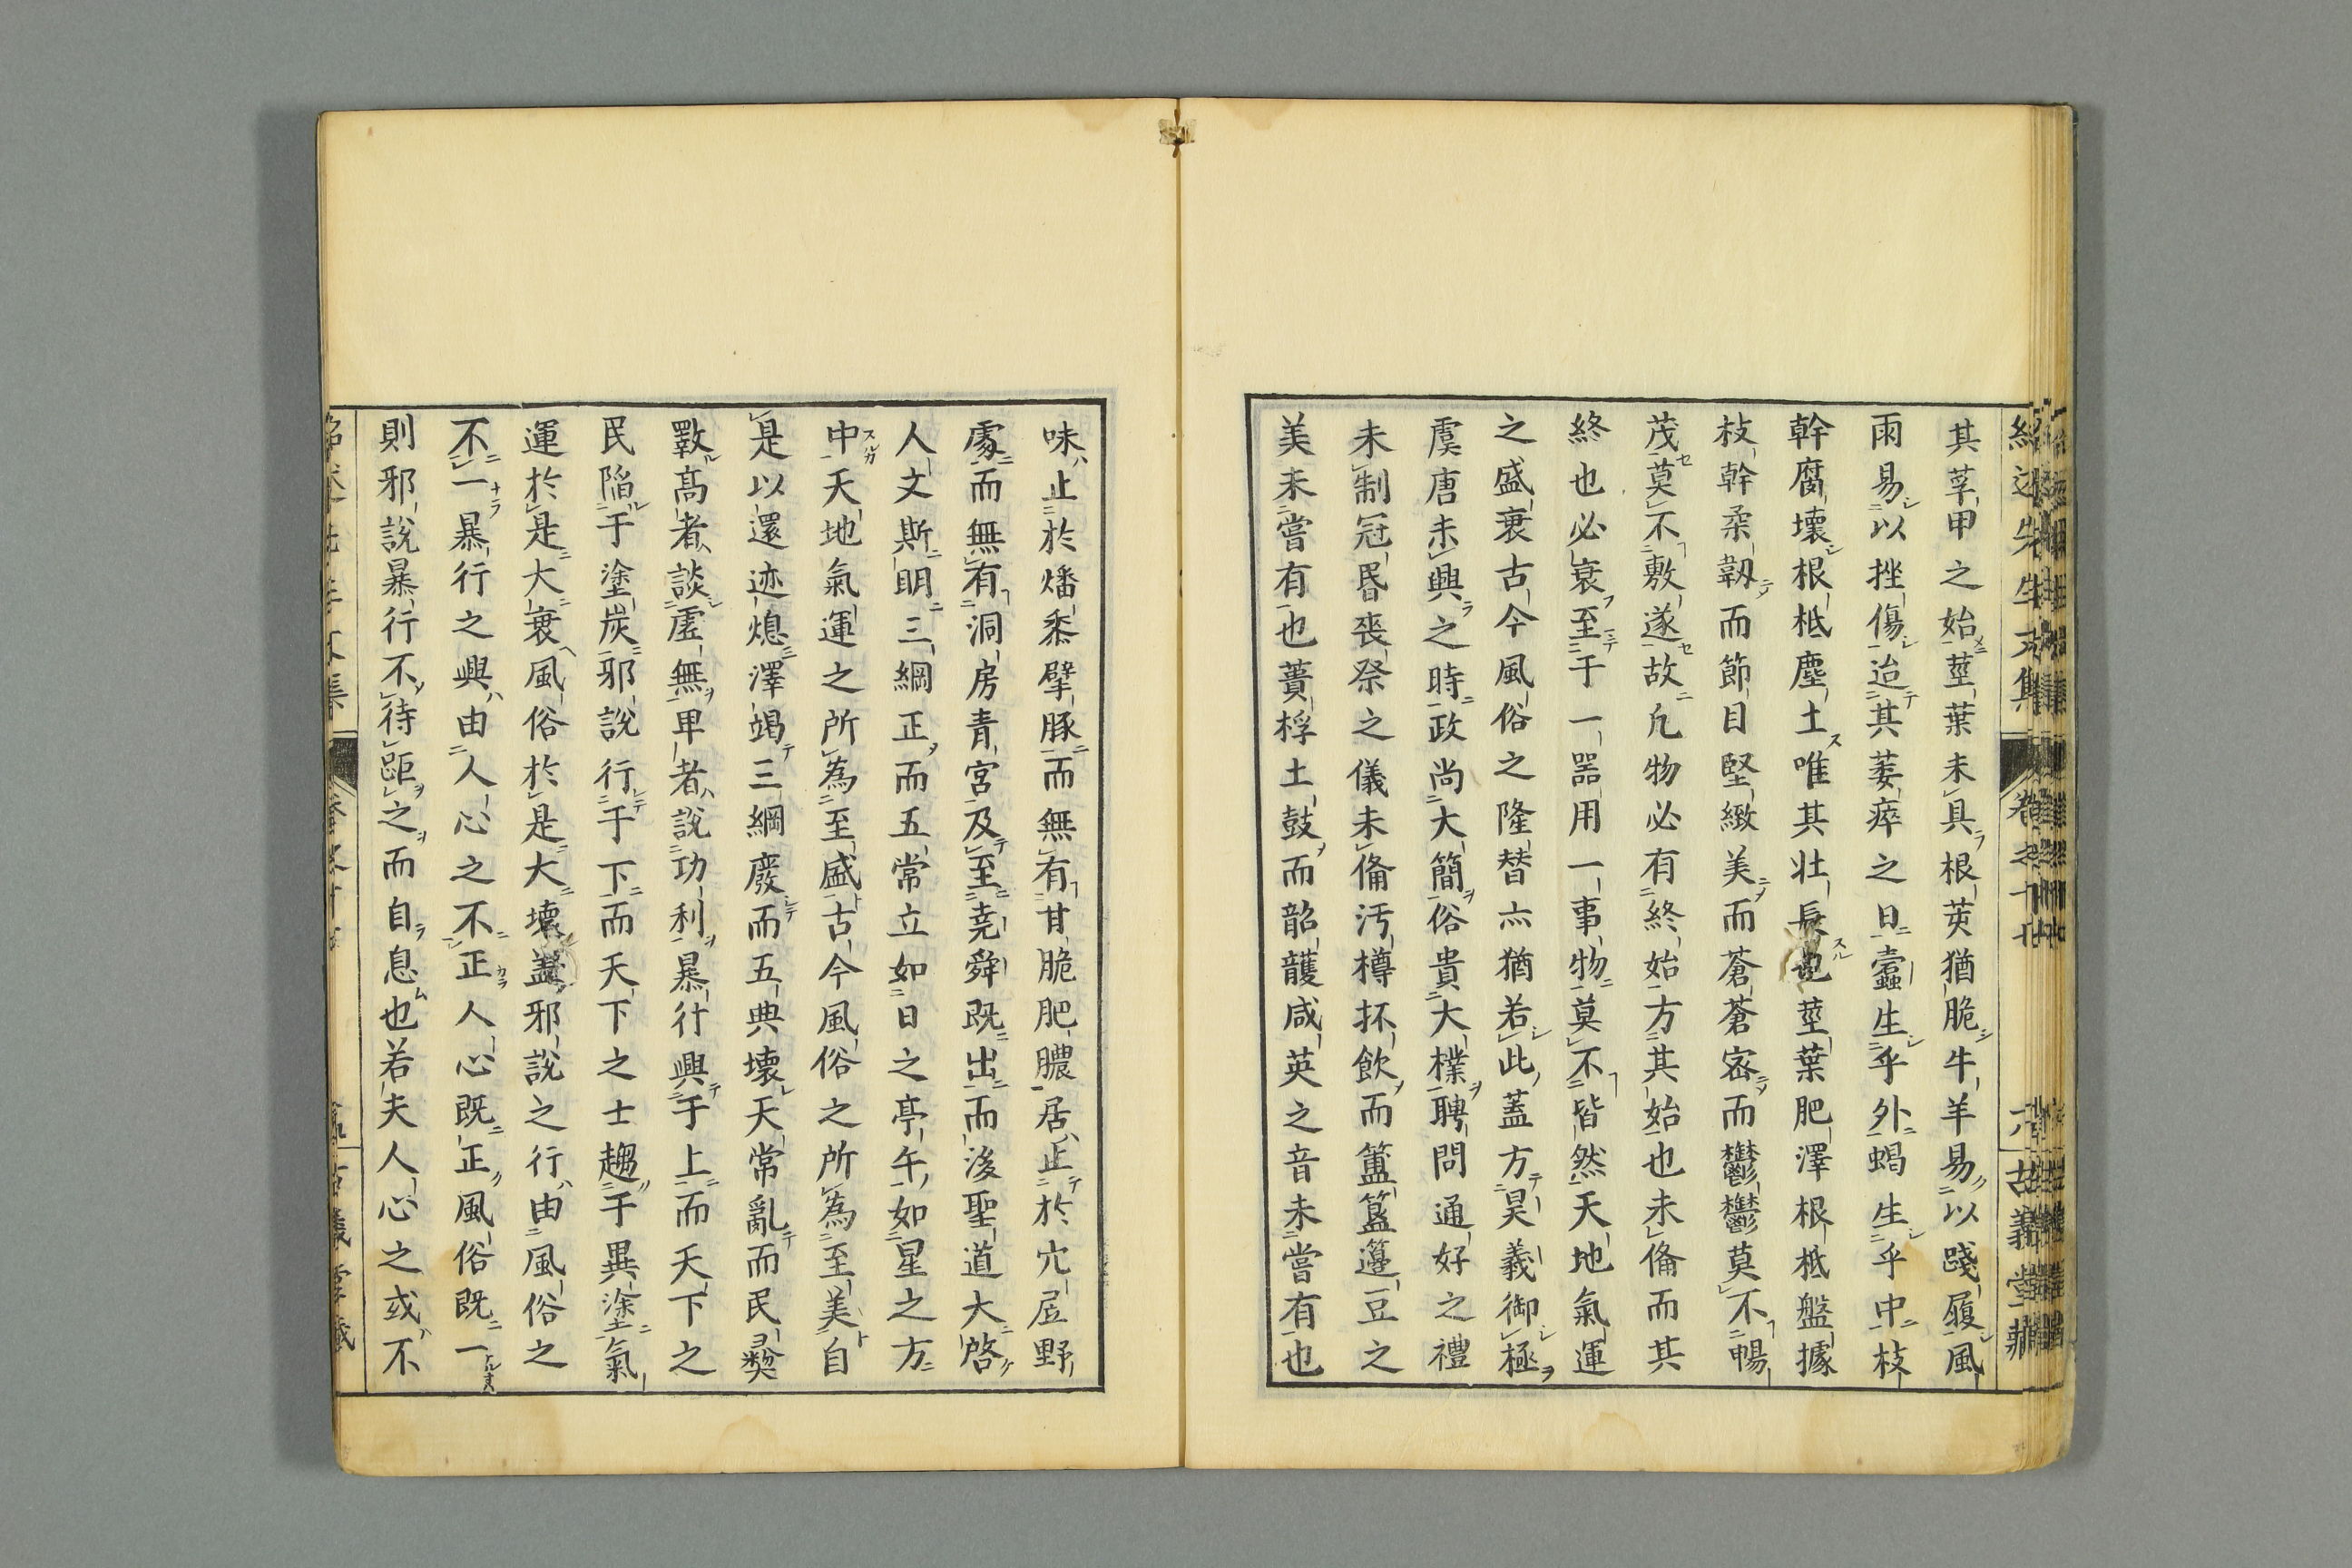 其莩甲之始莖葉未具根荄猶脆牛羊易以踐履風
雨易以挫傷迨其萎瘁之日蠹生乎外蝎生乎中枝
幹腐壞根柢塵土唯其壯長也莖葉肥澤根柢盤據
枝幹柔韌而節目堅緻美而蒼蒼密而鬱鬱莫不暢
茂莫不敷遂故凡物必有終始方其始也未偹而其
終也必衰至于一器用一事物莫不皆然天地氣運
之盛衰古今風俗之隆替亦猶若此蓋方昊義御極
虞唐未興之時政尚大簡俗貴大樸聘問通好之禮
未制冠昏喪祭之儀未偹汚樽抔飲而簠簋籩豆之
美未嘗有也蕢桴土鼓而韶頀咸英之音未嘗有也
味止於燔黍擘豚而無有甘脆肥膿居止於穴居野
處而無有洞房青宮及至堯舜既出而後聖道大啓
人文斯明三綱正而五常立如日之亭午如星之方
中天地氣運之所為至盛古今風俗之所為至美自
是以還迹熄澤竭三綱廢而五典壞天常亂而民彛
斁高者談虛無卑者說功利暴行興于上而天下之
民陷于塗炭邪說行于下而天下之士趨于異塗氣
運於是大衰風俗於是大壞蓋邪說之行由風俗之
不一暴行之興由人心之不正人心既正風俗既一
則邪說暴行不待距之而自息也若夫人心之或不